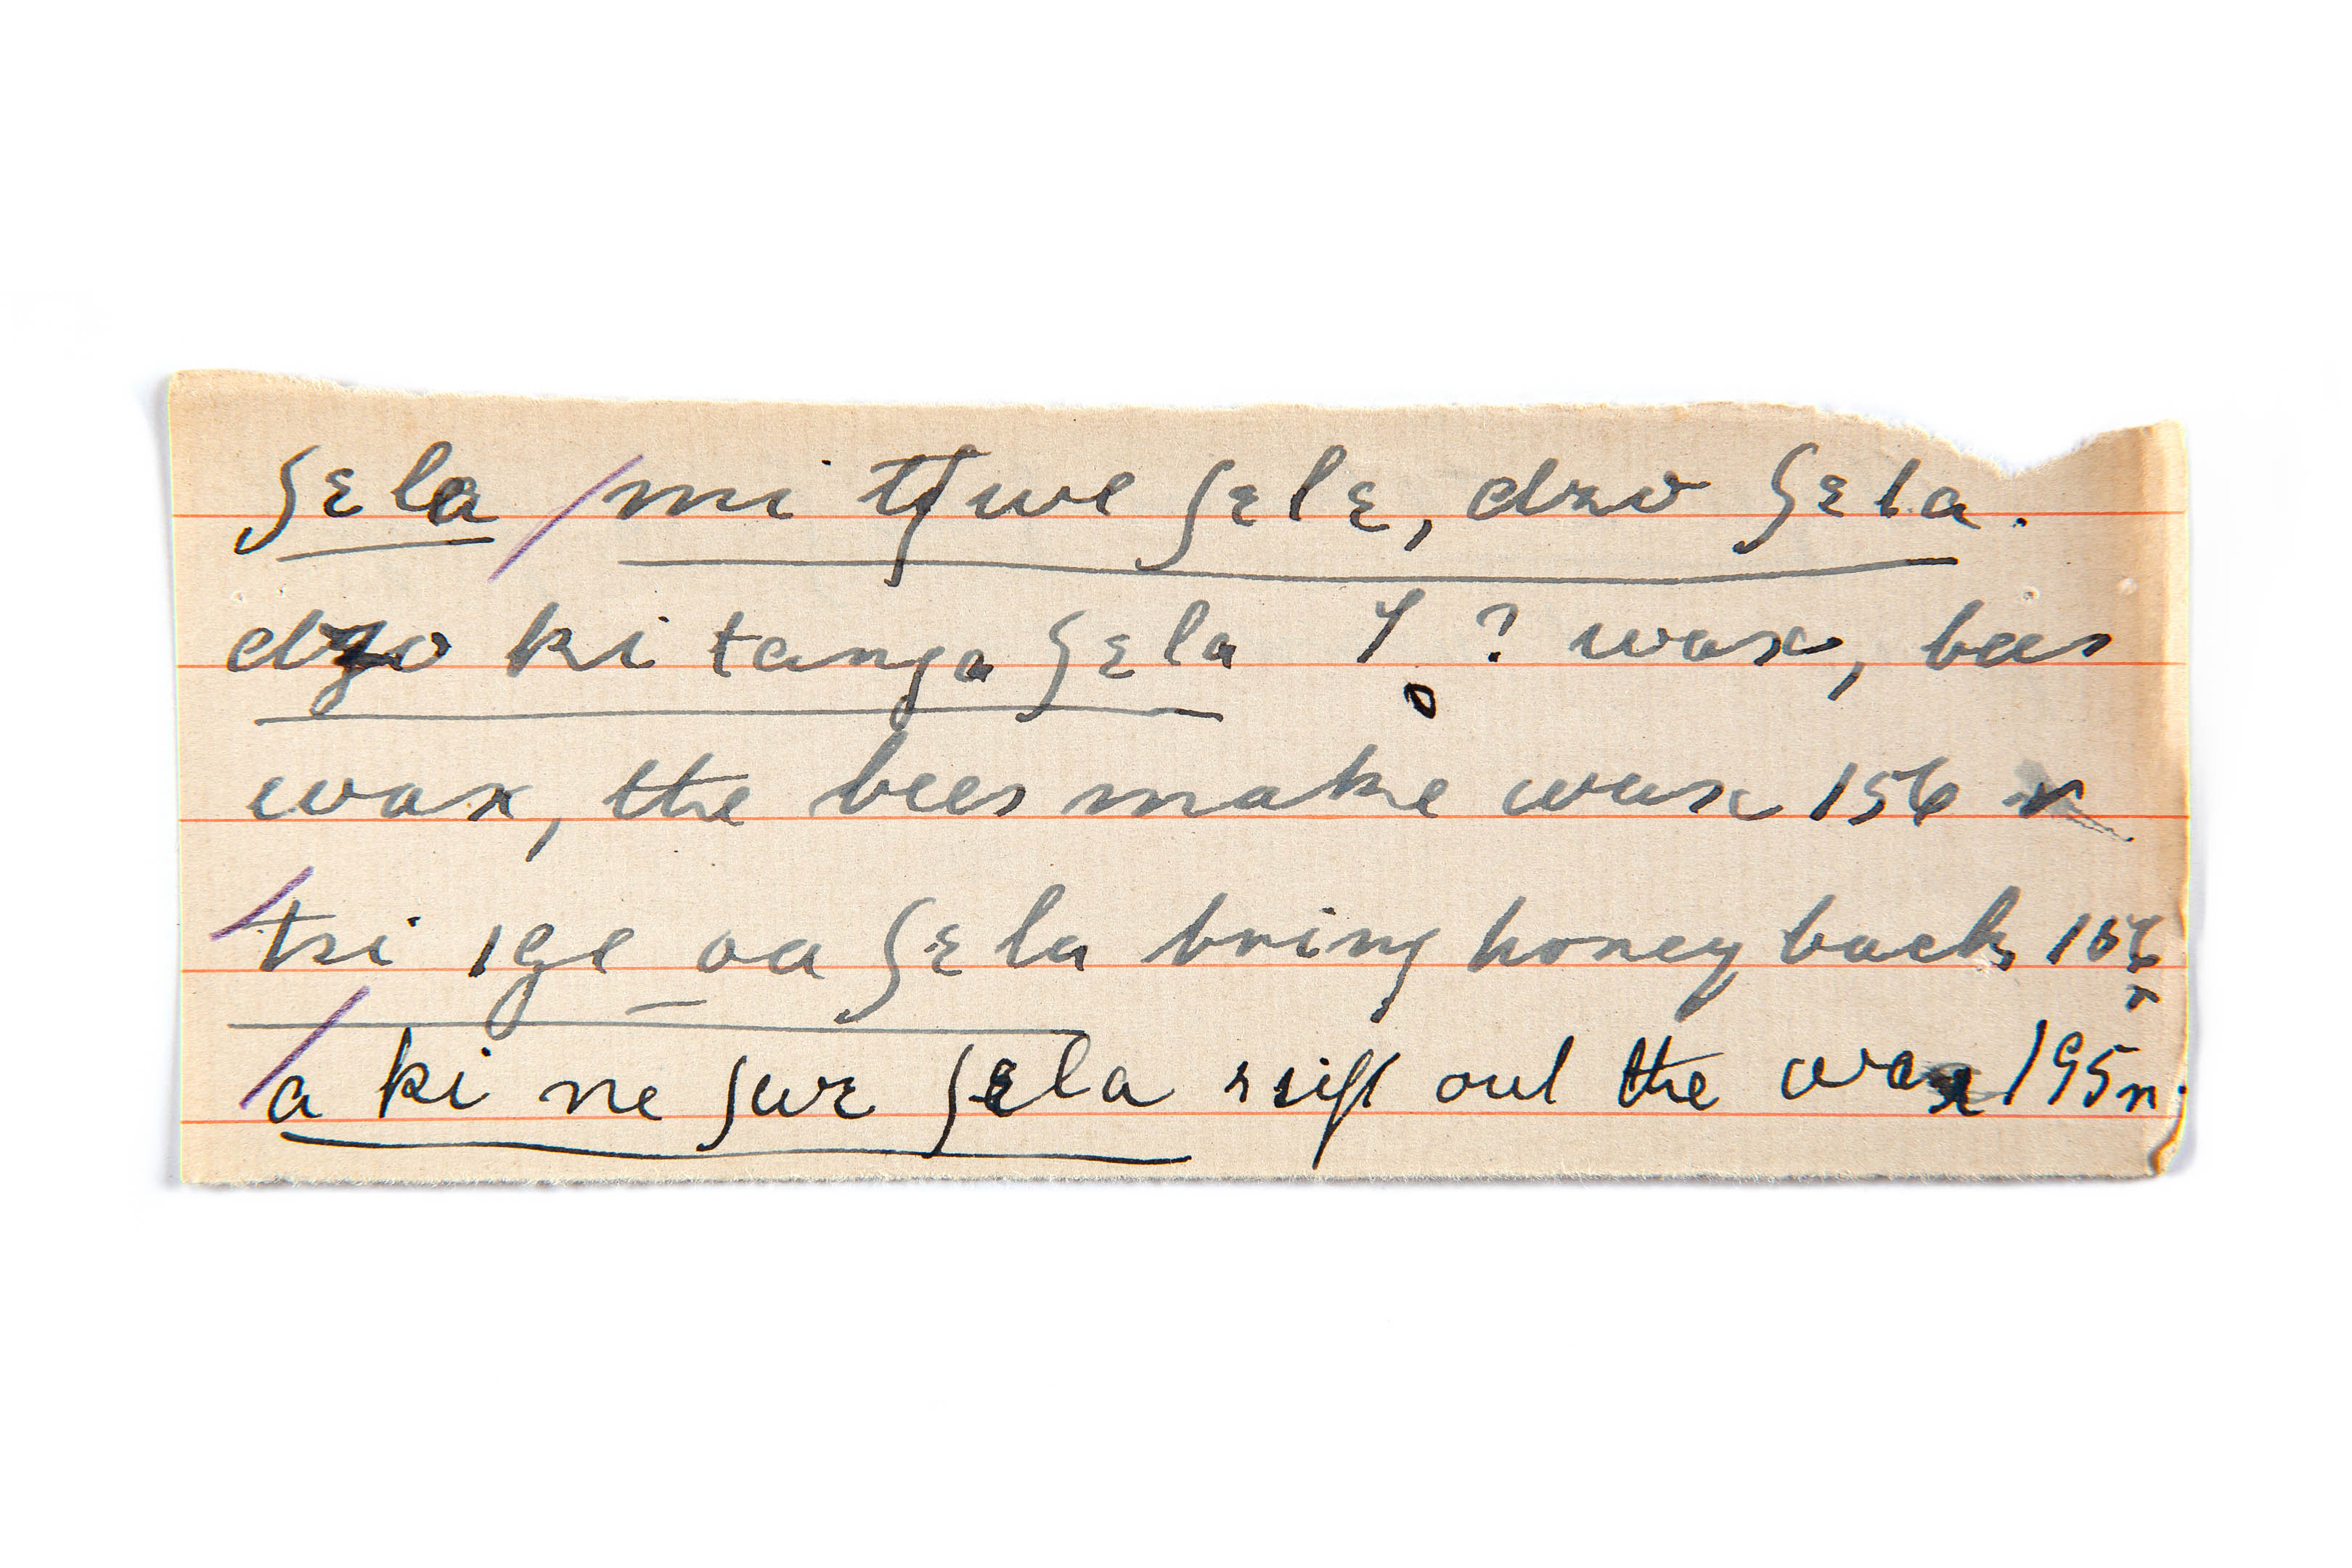 ʃɛla / mi tʃwe ʃɛlɛ, dzo ʃɛla.
dzo ki tanga ʃɛla ? wax, bees
wax, the bees make wax 156 n
tsi ige oa ʃɛla bring honey back 156
n
a ki ne ʃwɛ ʃɛla sift out the wax 195n.